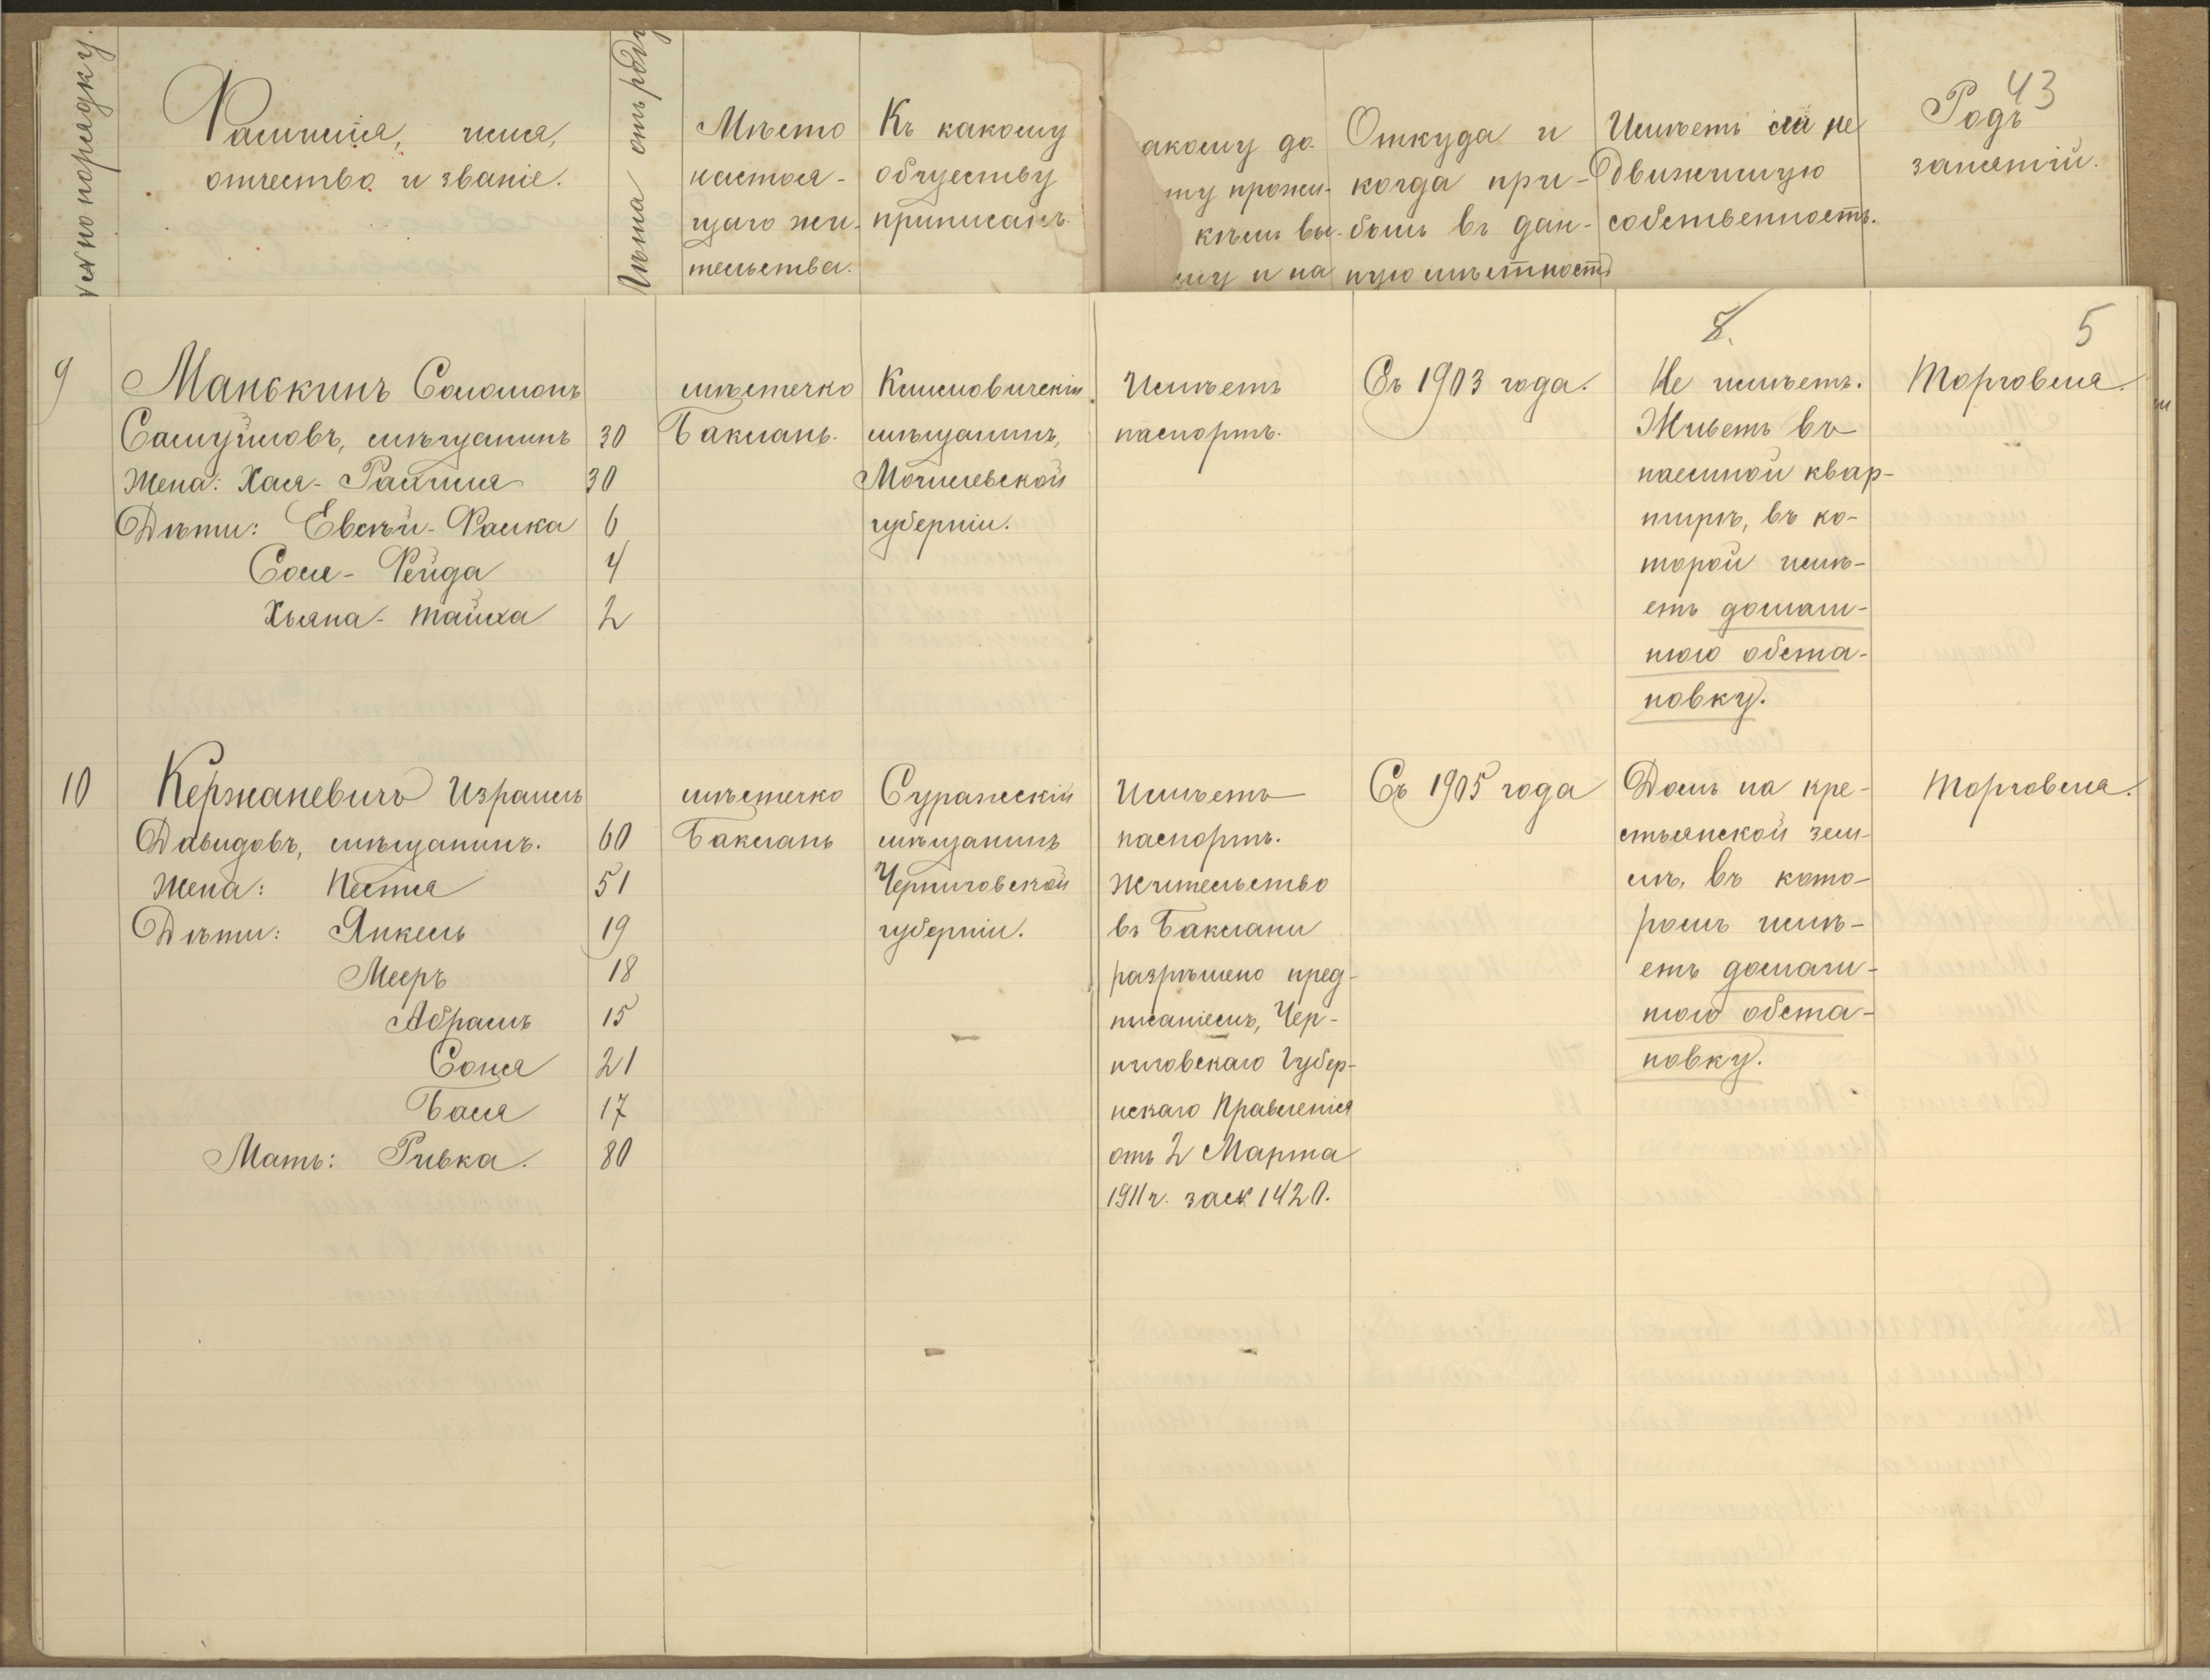 43
по порядку.
Фамилія, имя,
отчество и званіе.
Лѣта отъ роду
Мѣсто
настоя-
щаго жи-
тельства.
Къ какому
обществу
приписанъ.
акому до-
ту прожи-
кѣмъ вы-
му и на
Откуда и
когда при-
былъ въ дан-
ную мѣстность
Имѣетъ ли не
движимую
собственность.
Родъ
занятій.
8.
5
9
Манькинъ Соломонъ
Самуйловъ, мѣщанинъ 30
Жена: Хася- 30
Дѣти: Евсѣй- 6
Соня- Фейда 4
Хьяна- 2
мѣстечко
Баклань.
Климовичскій
мѣщанинъ,
Могилевской
губерніи.
Имѣетъ
паспортъ.
Съ 1903 года.
Не имѣетъ.
Живетъ въ
наемной квар-
тирѣ, въ ко-
торой имѣ-
етъ домаш-
нюю обста-
новку.
Торговля.
10
Кержаневичъ Израиль
Давидовъ, мѣщанинъ. 60
Жена: Песля 51
Дѣти: Янкель 19
Мееръ 18
Абрамъ 15
Соня 21
Бася 17
Мать: Ривка. 80
мѣстечко
Баклань
Суражскій
мѣщанинъ
Черниговской
губерніи.
Имѣетъ
паспортъ.
Жительство
въ Баклани
разрѣшено пред-
писаніемъ, Чер-
ниговскаго Губер-
нскаго Правленія
отъ 2 Марта
1911 г. за № 1420.
Съ 1905 года
Домъ на кре-
стьянской зем-
лѣ, въ кото-
ромъ имѣ-
етъ домаш-
нюю обста-
новку.
Торговля.